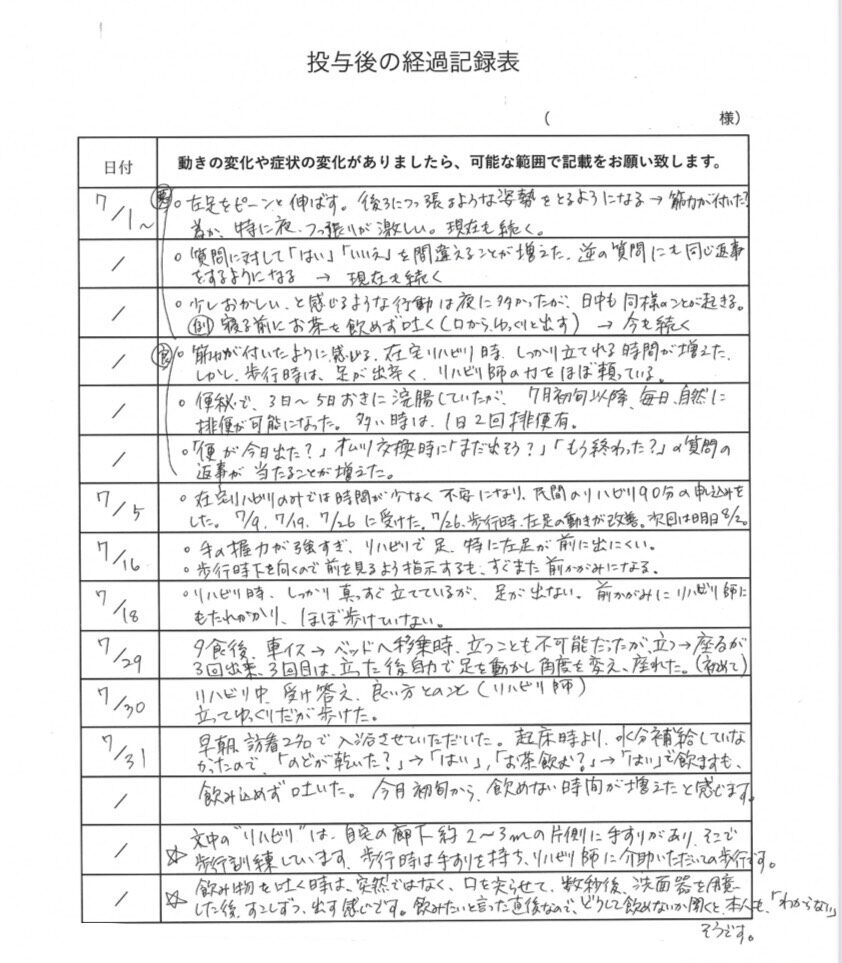 投与後の経過記録表
( 様)
日付 動きの変化や症状の変化がありましたら、可能な範囲で記載をお願い致します。
7/1~ ㊙。左足をピーンと伸ばす。後ろにつっ張るような姿勢をとるようになる→筋力が付いた?
為か、特に夜、つっ張りが激しい。現在も続く。
/ 。質問に対して「はい」「いいえ」を間違えることが増えた。逆の質問にも同じ返事
をするようになる → 現在も続く
/ 。少しおかしい、と感じるような行動は夜に多かったが、日中も同様のことが起きる。
例 寝る前にお茶を飲めず吐く(口からゆっくりと出す) → 今も続く
/ 良 。筋力が付いたように感じる。在宅リハビリ時、しっかり立てれる時間が増えた。
しかし、歩行時は、足が出辛く、リハビリ師の力をほぼ頼っている。
/ 。便秘で、3日~5日おきに浣腸していたが、7月初旬以降、毎日、自然に
排便が可能になった。多い時は、1日2回排便有。
/ 。「便が今日出た?」オムツ交換時に「まだ出そう?」「もう終わった?」の質問の
返事が当たることが増えた。
7/5 。在宅リハビリのみでは時間が少なく不安になり、民間のリハビリ90分の申込みを
した。7/9、7/19、7/26に受けた。7/26、歩行時、左足の動きが改善。次回は明日8/2。
7/16 。手の握力が強すぎ、リハビリで足、特に左足が前に出にくい。
。歩行時下を向くので前を見るよう指示するも、すぐまた前かがみになる。
7/18 。リハビリ時、しっかり真っすぐ立てているが、足が出ない。前かがみにリハビリ師に
もたれかかり、ほぼ歩けていない。
7/29 夕食後、車イス→ベッドへ移乗時、立つことも不可能だったが、立つ→座るが
3回出来、3回目は、立った後自力で足を動かし角度を変え、座れた。(初めて)
7/30 リハビリ中、受け答え、良い方とのこと(リハビリ師)
立ってゆっくりだが歩けた。
7/31 早朝、訪看2名で入浴させていただいた。起床時より、水分補給していな
かったので、「のどが乾いた?」→「はい」,「お茶飲む?」→「はい」で飲ますも、
/ 飲み込めず吐いた。今月初旬から、飲めない時間が増えたと感じます。
/ 文中の"リハビリ"は、自宅の廊下約2~3mの片側に手すりがあり、そこで
☆ 歩行訓練しています。歩行時は手すりを持ち、リハビリ師に介助いただいての歩行です。
/ 飲み物を吐く時は、突然ではなく、口を尖らせて、数秒後、洗面器を用意
☆ した後、すこしずつ、出す感じです。飲みたいと言った直後なので、どうして飲めないか聞くと、本人も、「わからない」
そうです。